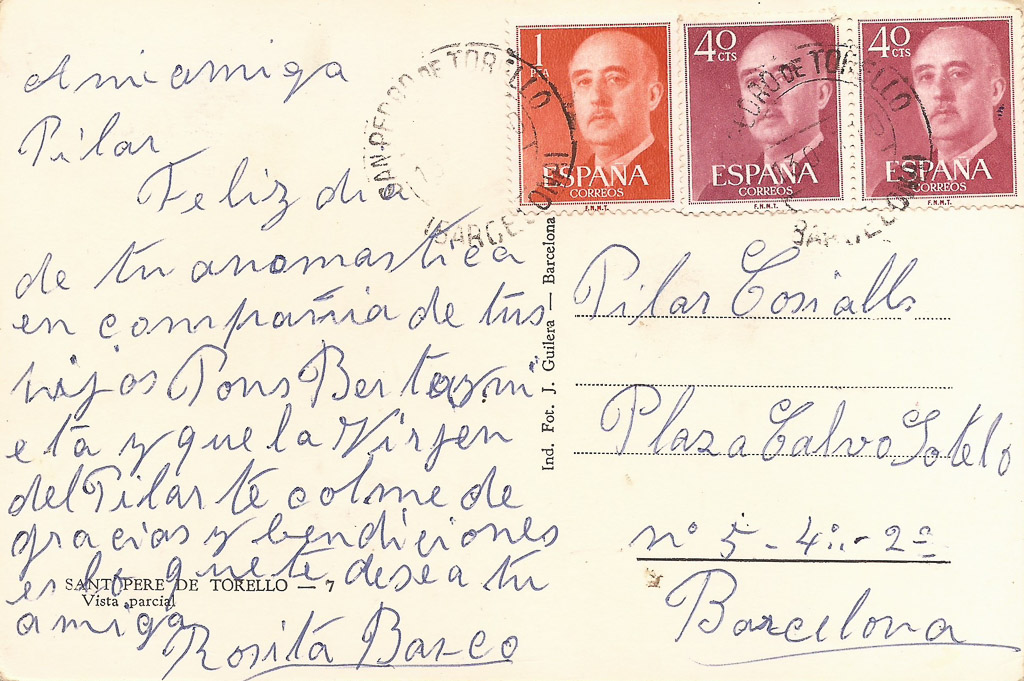 A mi amiga
Pilar
Feliz dia
de tu anomastica
en compañia de tus
hijos Pons Berta y mi
eta y que la Virjen
del Pilar te colme de
gracias y bendiciones
es lo que te desea tu
amiga
Rosita Basco
SANT PERE DE TORELLO — 7
Vista parcial
Ind. Fot. J. Guilera — Barcelona
1
PTA
ESPAÑA
CORREOS
F.N.M.T.
40
CTS
ESPAÑA
CORREOS
F.N.M.T.
40
CTS
ESPAÑA
CORREOS
F.N.M.T.
SAN PEDRO DE TORELLO
(BARCELONA)
DE TORELLO
BARCELONA
Pilar Cosialls
Plaza Calvo Sotelo
nº 5 - 4º - 2ª
Barcelona